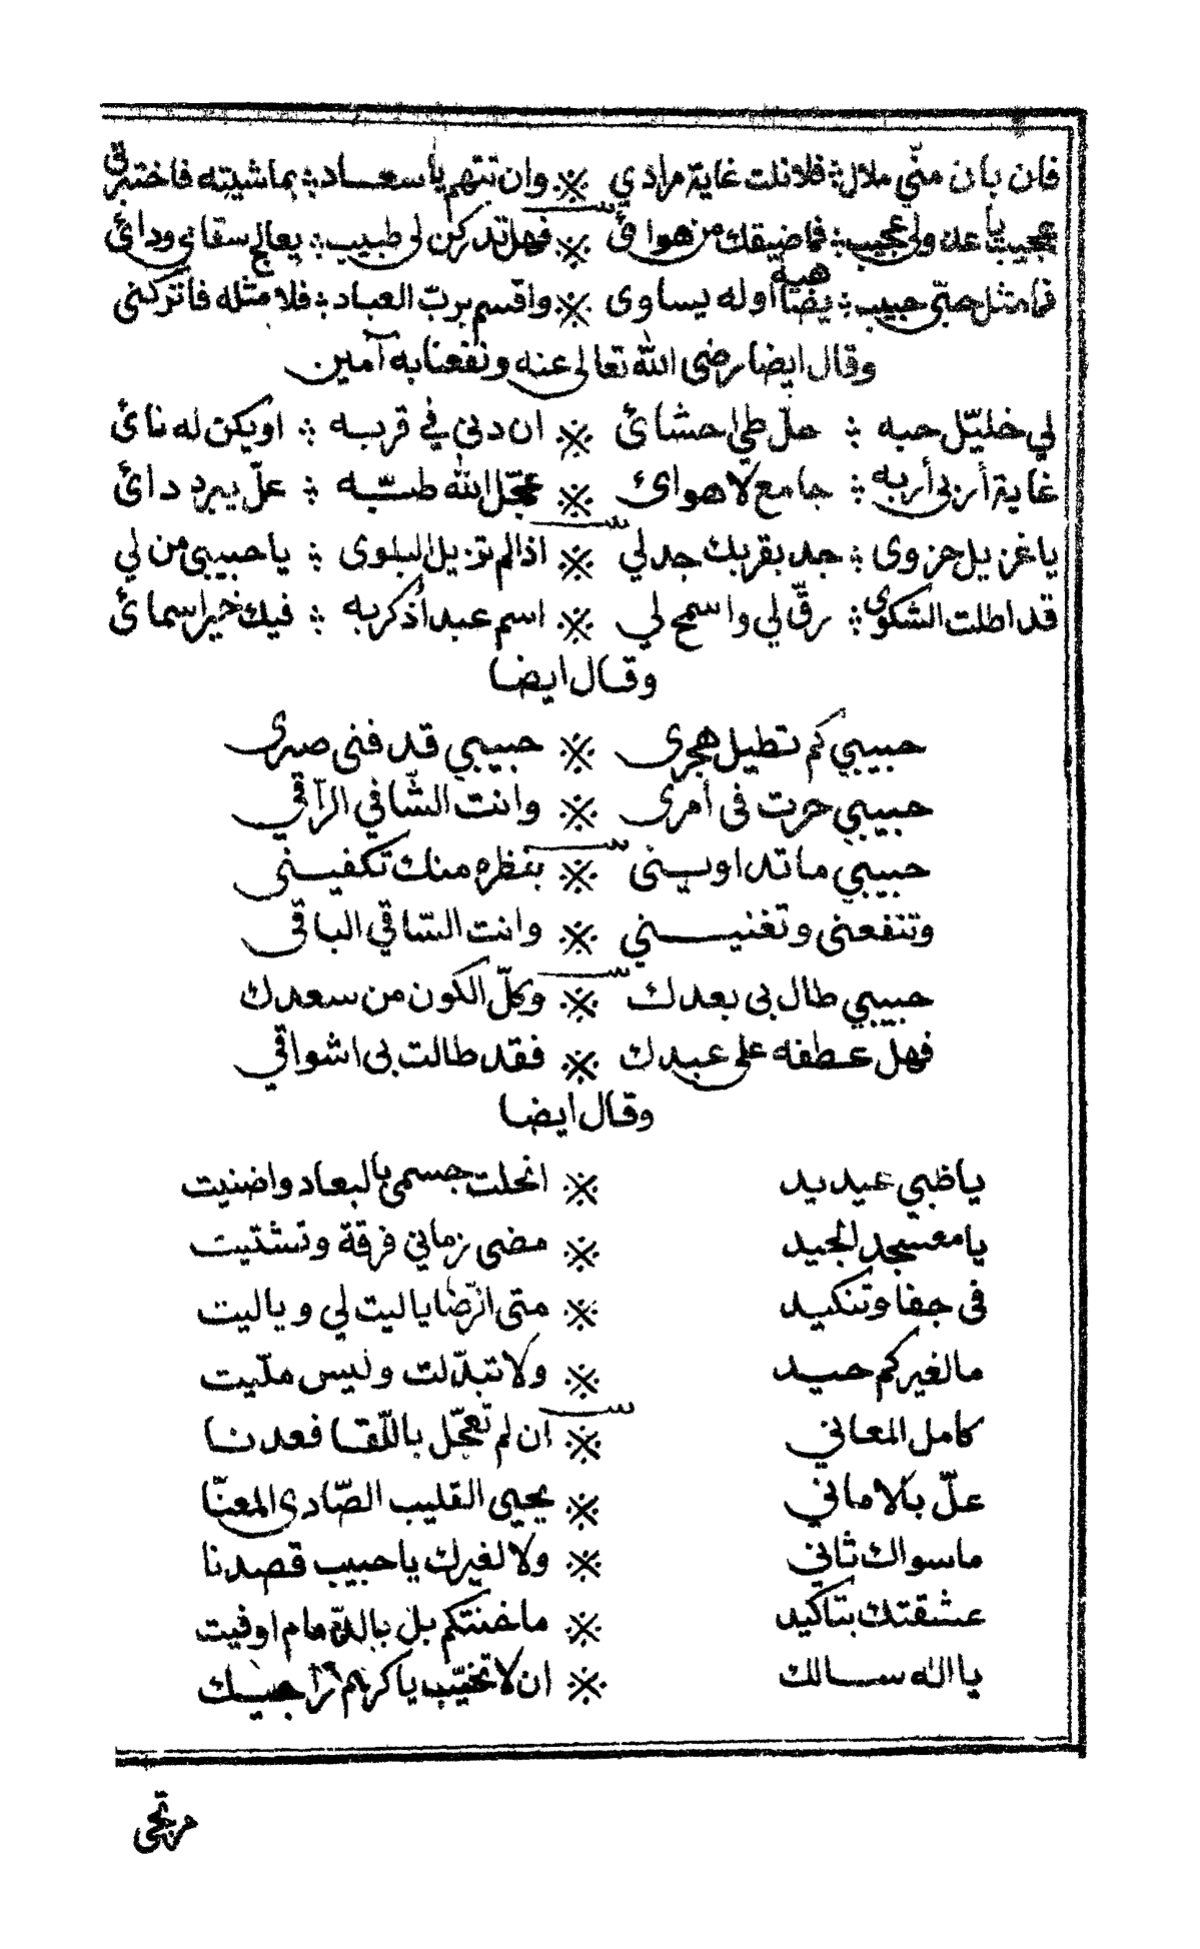 فان بان منّي ملال فلا نلت غاية مرادي ※ وان تتهم يا سعاد بما شيته فاختبرني
عجيب يا عاذ ولي عجيب فما ضيقك من هوا فيّ ※ فهل تدركن لي طبيب يعالج سقاني ودائ
فما مثل حبّي حبيب يضاهيه اوله يساوى ※ واقسم بربّ العباد فلا مثله فاتركني
وقال ايضا رضى الله تعالى عنه ونفعنا به آمين
لي خليّل حبه حلّ طي احشائ ※ ان دنى في قربه او يكن له نائ
غاية أربى أربه جامع لاهوائ ※ عجّل الله طبّه علّ يبرد دائ
يا غزيل حزوى جد بقربك جد لي ※ اذا لم تزيل البلوى يا حبيبى من لي
قد اطلت الشكوى رقّ لي واسمح لي ※ اسم عبد أذكر به فيك خير اسمائ
وقال ايضا
حبيبي كم تطيل هجرى ※ حبيبي قد فنى صبرى
حبيبي حرت فى أمرى ※ وانت الشّافي الرآقي
حبيبي ما تداوينى ※ بنظره منك تكفينى
وتنفعنى وتغنيني ※ وانت السّاقي الباقى
حبيبي طال بى بعدك ※ وكلّ الكون من سعدك
فهل عطفه على عبدك ※ فقد طالت بى اشواقي
وقال ايضا
يا ظبي عيديد ※ انحلت جسمى بالبعاد واضنيت
يا معسجد الجيد ※ مضى زماني فرقة وتشتيت
فى جفا وتنكيد ※ متى الرّضا يا ليت لي ويا ليت
ما لغيركم صيد ※ ولا تبدّلت وليس ملّيت
كامل المعاني ※ ان لم تعجّل باللّقا فعدنا
علّ بالاماني ※ يحيى القليب الصّادى المعنّا
ما سواك ثاني ※ ولا لغيرك يا حبيب قصدنا
عشقتك بتاكيد ※ ما خنتكم بل بالذّمام اوفيت
يا الله سالك ※ ان لا تخيّب يا كريم راجيك
مرتجى